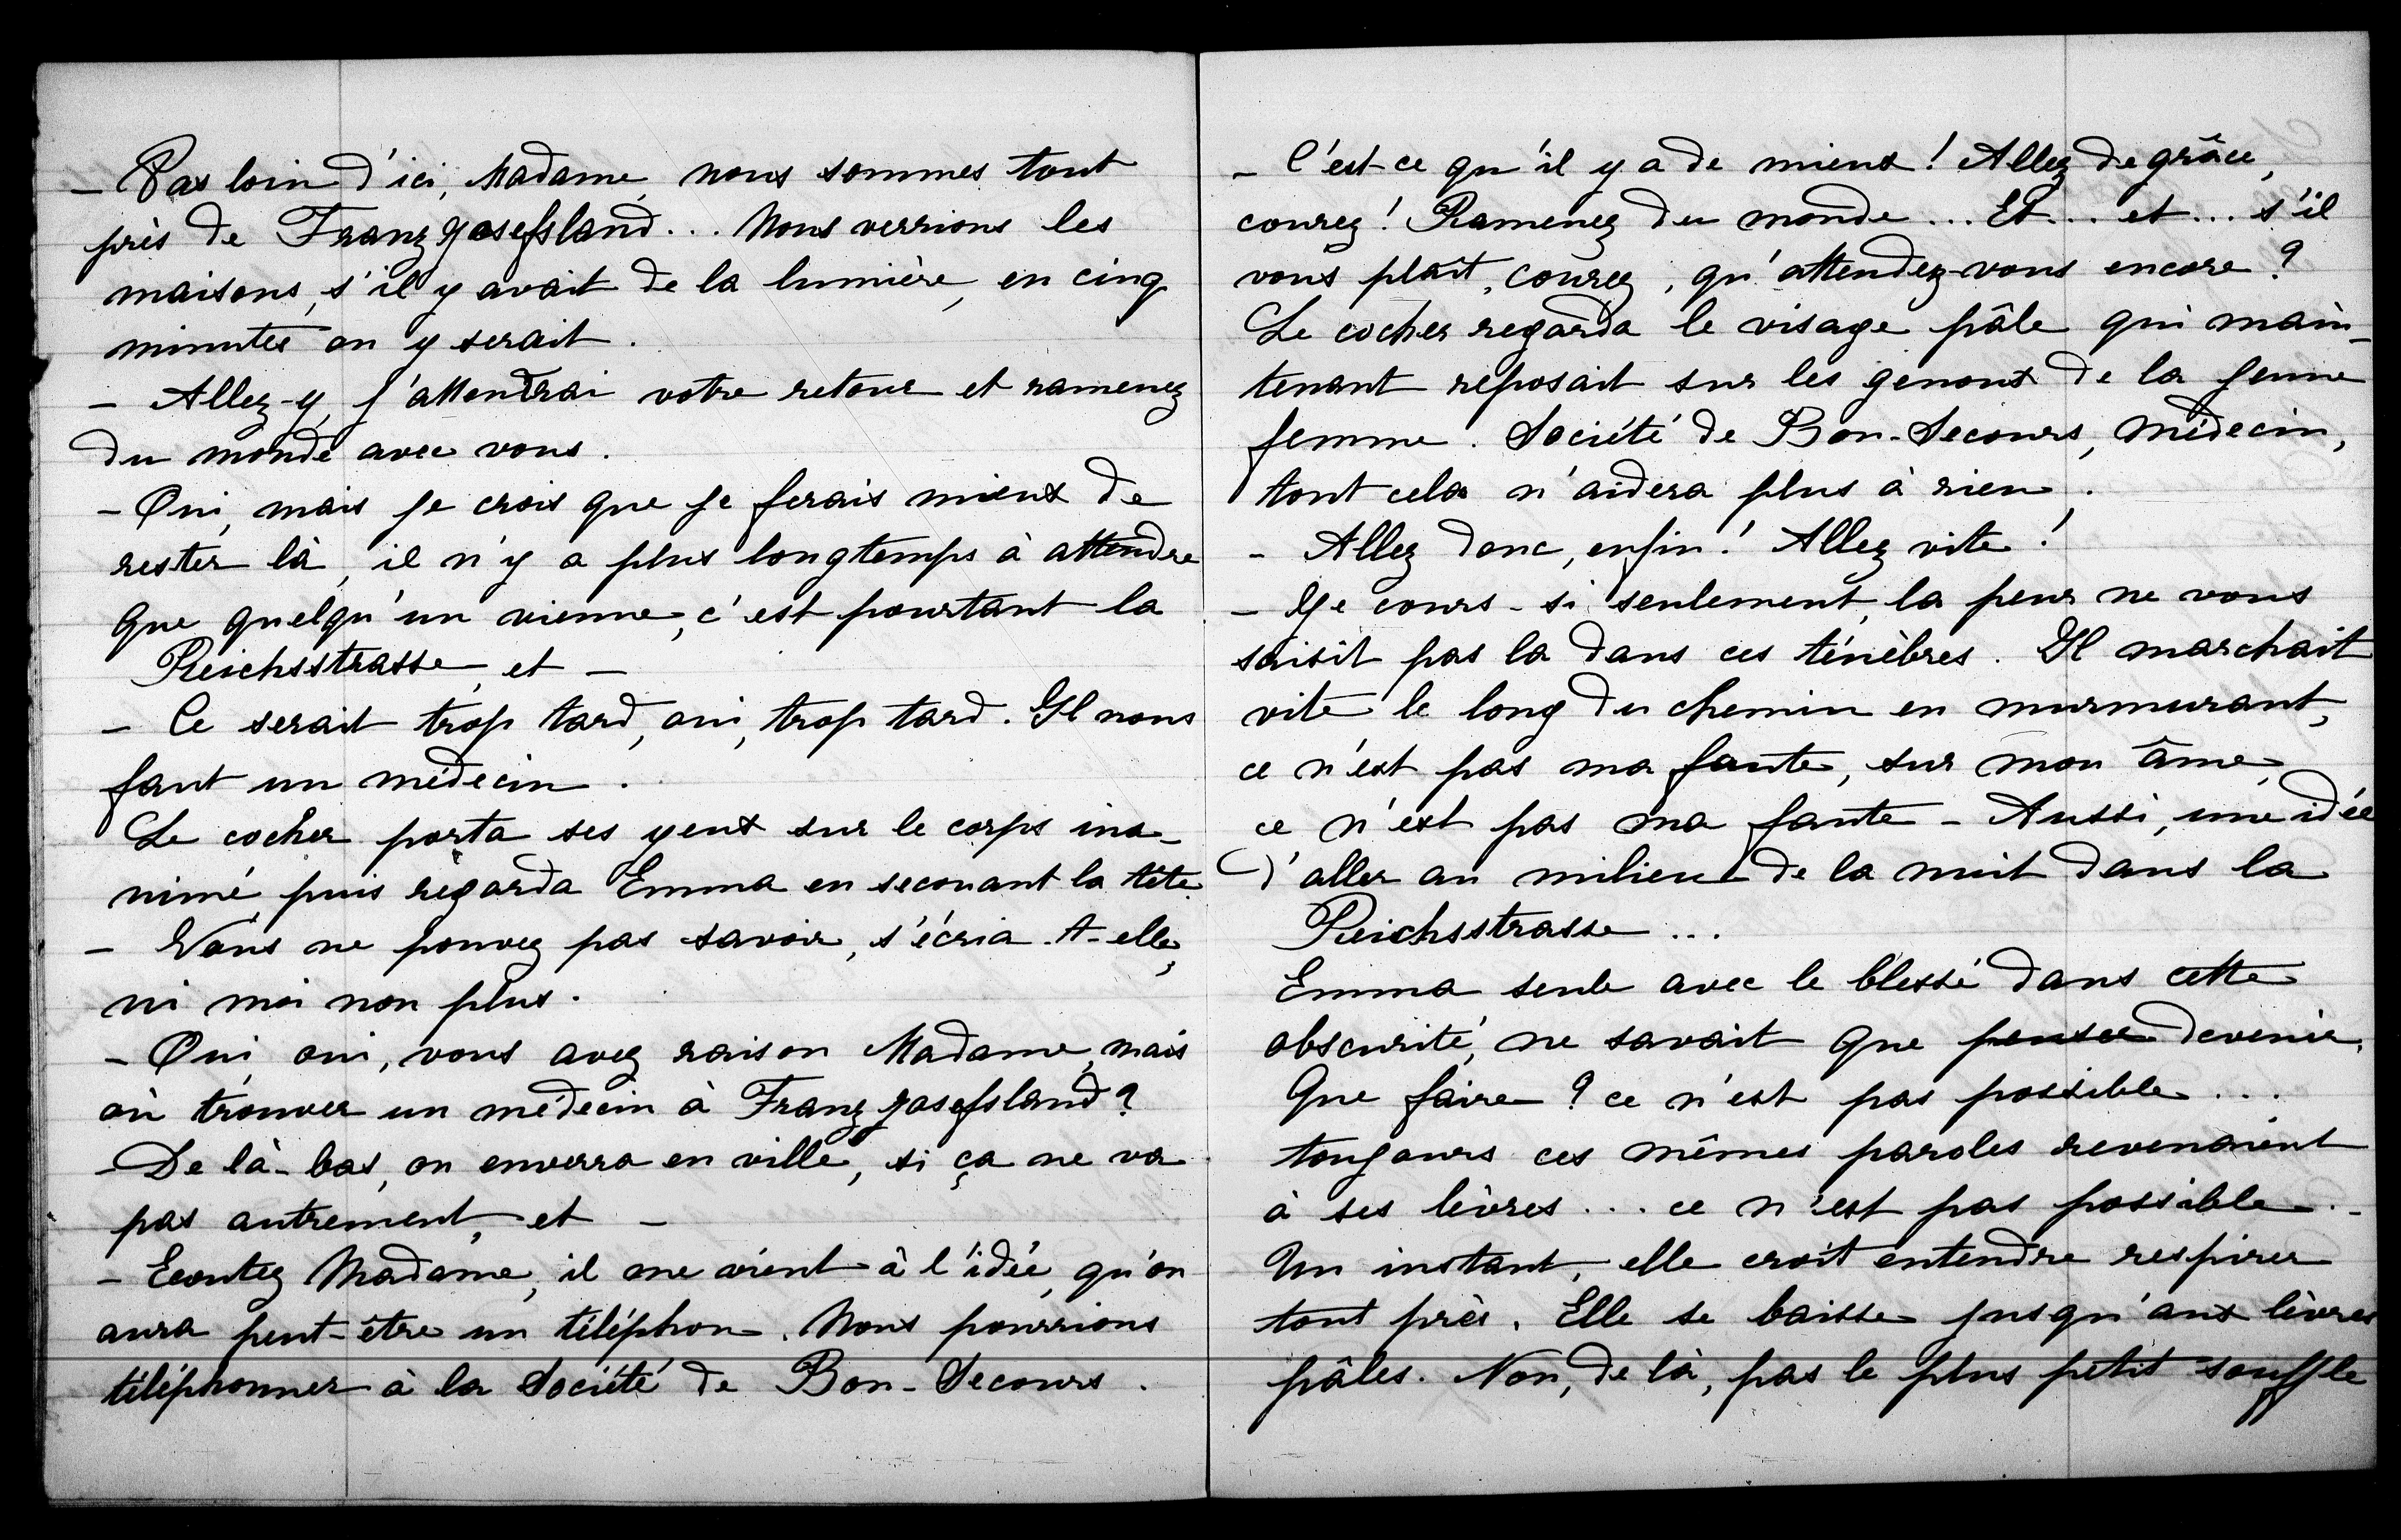 - Pas loin d'ici, Madame, nous sommes tout
près de Franz Josefsland... Nous verrions les
maisons, s'il y avait de la lumière, en cinq
minutes on y serait.
- Allez-y, j'attendrai votre retour et ramenez
du monde avec vous.
- Oui, mais je crois que je ferais mieux de
rester là, il n'y a plus longtemps à attendre
que quelqu'un vienne, c'est pourtant la
Reichsstrasse, et -
- Ce serait trop tard, oui, trop tard. Il nous
faut un médecin.
Le cocher porta ses yeux sur le corps ina-
nimé, puis regarda Emma en secouant la tête.
- Vous ne pouvez pas savoir, s'écria-t-elle,
ni moi non plus.
- Oui, oui, vous avez raison Madame, mais
où trouver un médecin à Franz Josefsland?
- De là-bas, on enverra en ville, si ça ne va
pas autrement, et -
- Ecoutez Madame, il me vient à l'idée, qu'on
aura peut-être un téléphon. Nous pourrions
téléphonner à la Société de Bon-Secours.
- C'est ce qu'il y a de mieux! Allez de grâce,
courez! Ramenez du monde... Et... et... s'il
vous plaît, courez, qu'attendez-vous encore?
Le cocher regarda le visage pâle qui main-
tenant reposait sur les genoux de la jeune
femme. Société de Bon-Secours, médecin,
tout cela n'aidera plus à rien.
- Allez donc, enfin! Allez vite!
- Je cours - si seulement, la peur ne vous
saisit pas la dans ces ténèbres. Il marchait
vite le long du chemin en murmurant,
ce n'est pas ma faute, sur mon âme,
ce n'est pas ma faute - Aussi, une idée
d'aller au milieu de la nuit dans la
Reichsstrasse...
Emma seule avec le blessé dans cette
obscurité, ne savait que penser devenir.
Que faire? ce n'est pas possible...
toujours ces mêmes paroles revenaient
à ses lèvres... ce n'est pas possible.-
Un instant, elle croit entendre respirer
tout près. Elle se baisse jusqu'aux lèvres
pâles. Non, de là, pas le plus petit souffle